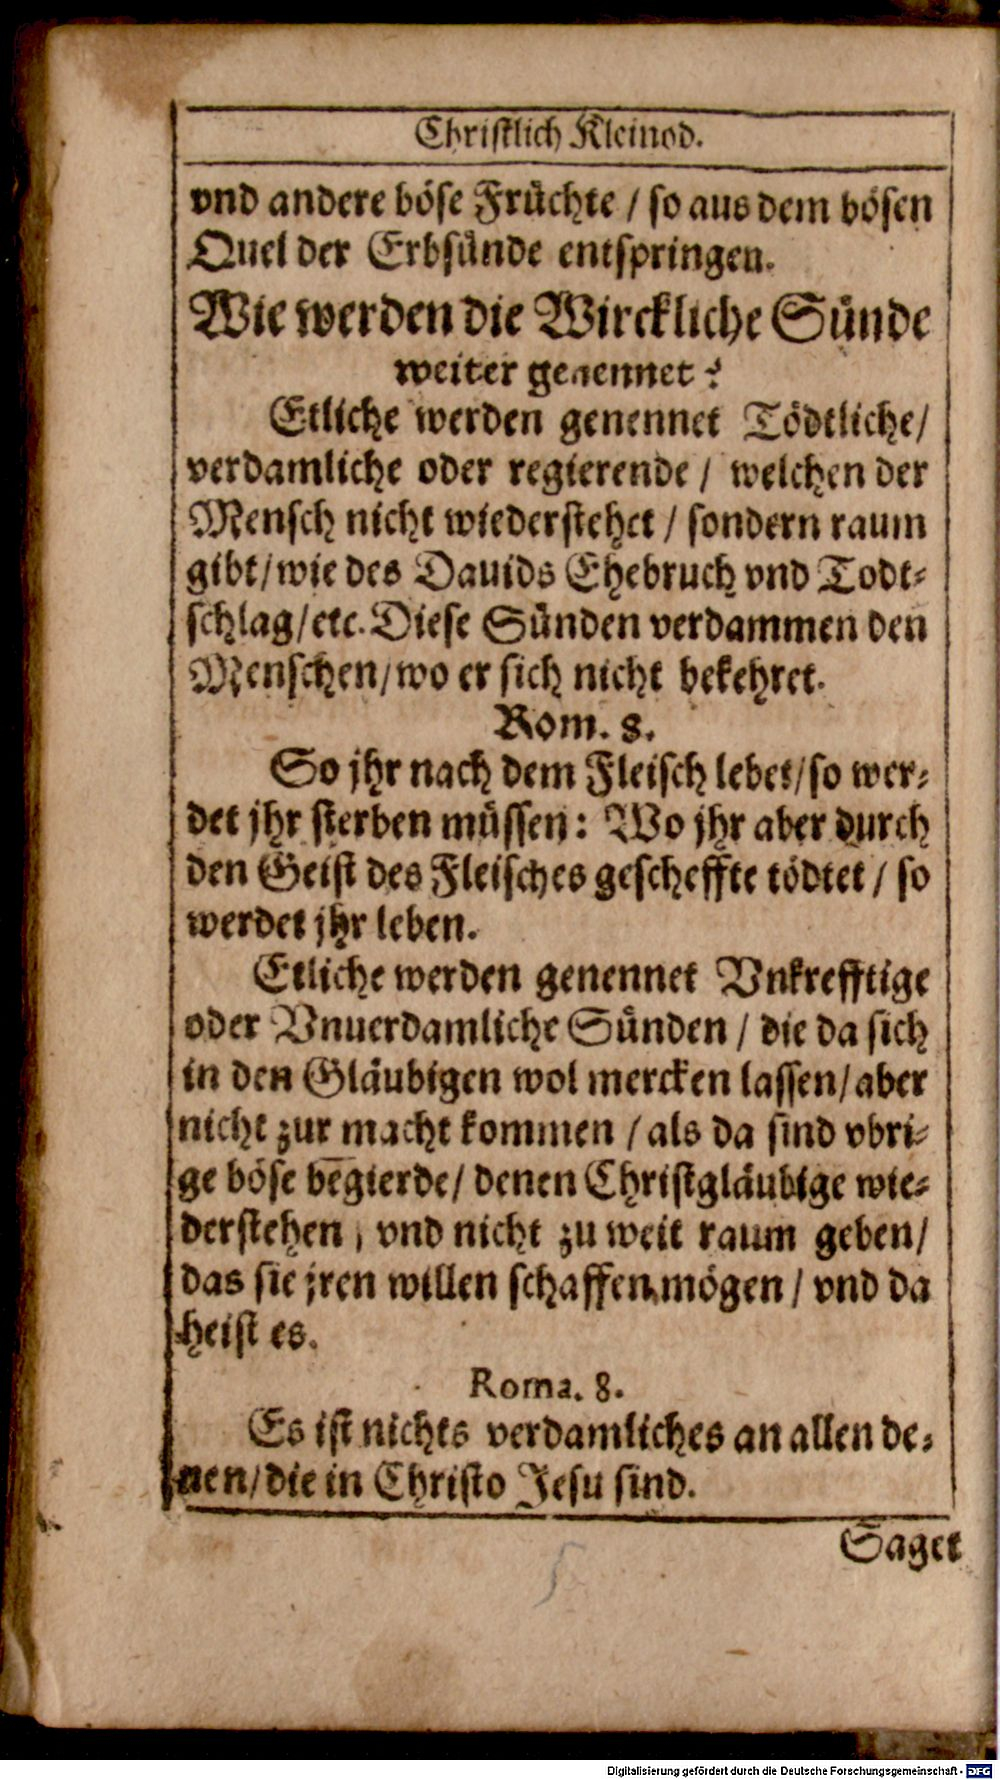 Christlich Kleinod.
vnd andere böse Früchte / so aus dem bösen
Quel der Erbsünde entspringen.
Wie werden die Wirckliche Sünde
weiter genennet?
Etliche werden genennet Tödtliche/
verdamliche oder regierende / welchen der
Mensch nicht wiederstehet / sondern raum
gibt/wie des Dauids Ehebruch vnd Todt-
schlag/etc. Diese Sünden verdammen den
Menschen/wo er sich nicht bekehret.
Rom. 8.
So jhr nach dem Fleisch lebet/so wer-
det jhr sterben müssen: Wo jhr aber durch
den Geist des Fleisches gescheffte tödtet / so
werdet jhr leben.
Etliche werden genennet Vnkrefftige
oder Vnuerdamliche Sünden / die da sich
in den Gläubigen wol mercken lassen/aber
nicht zur macht kommen / als da sind vbri-
ge böse begierde/ denen Christgläubige wie-
derstehen, vnd nicht zu weit raum geben/
das sie jren willen schaffen mögen / vnd da
heist es.
Roma. 8.
Es ist nichts verdamliches an allen de-
nen/die in Christo Jesu sind.
Saget
5
Digitalisierung gefördert durch die Deutsche Forschungsgemeinschaft - DFG